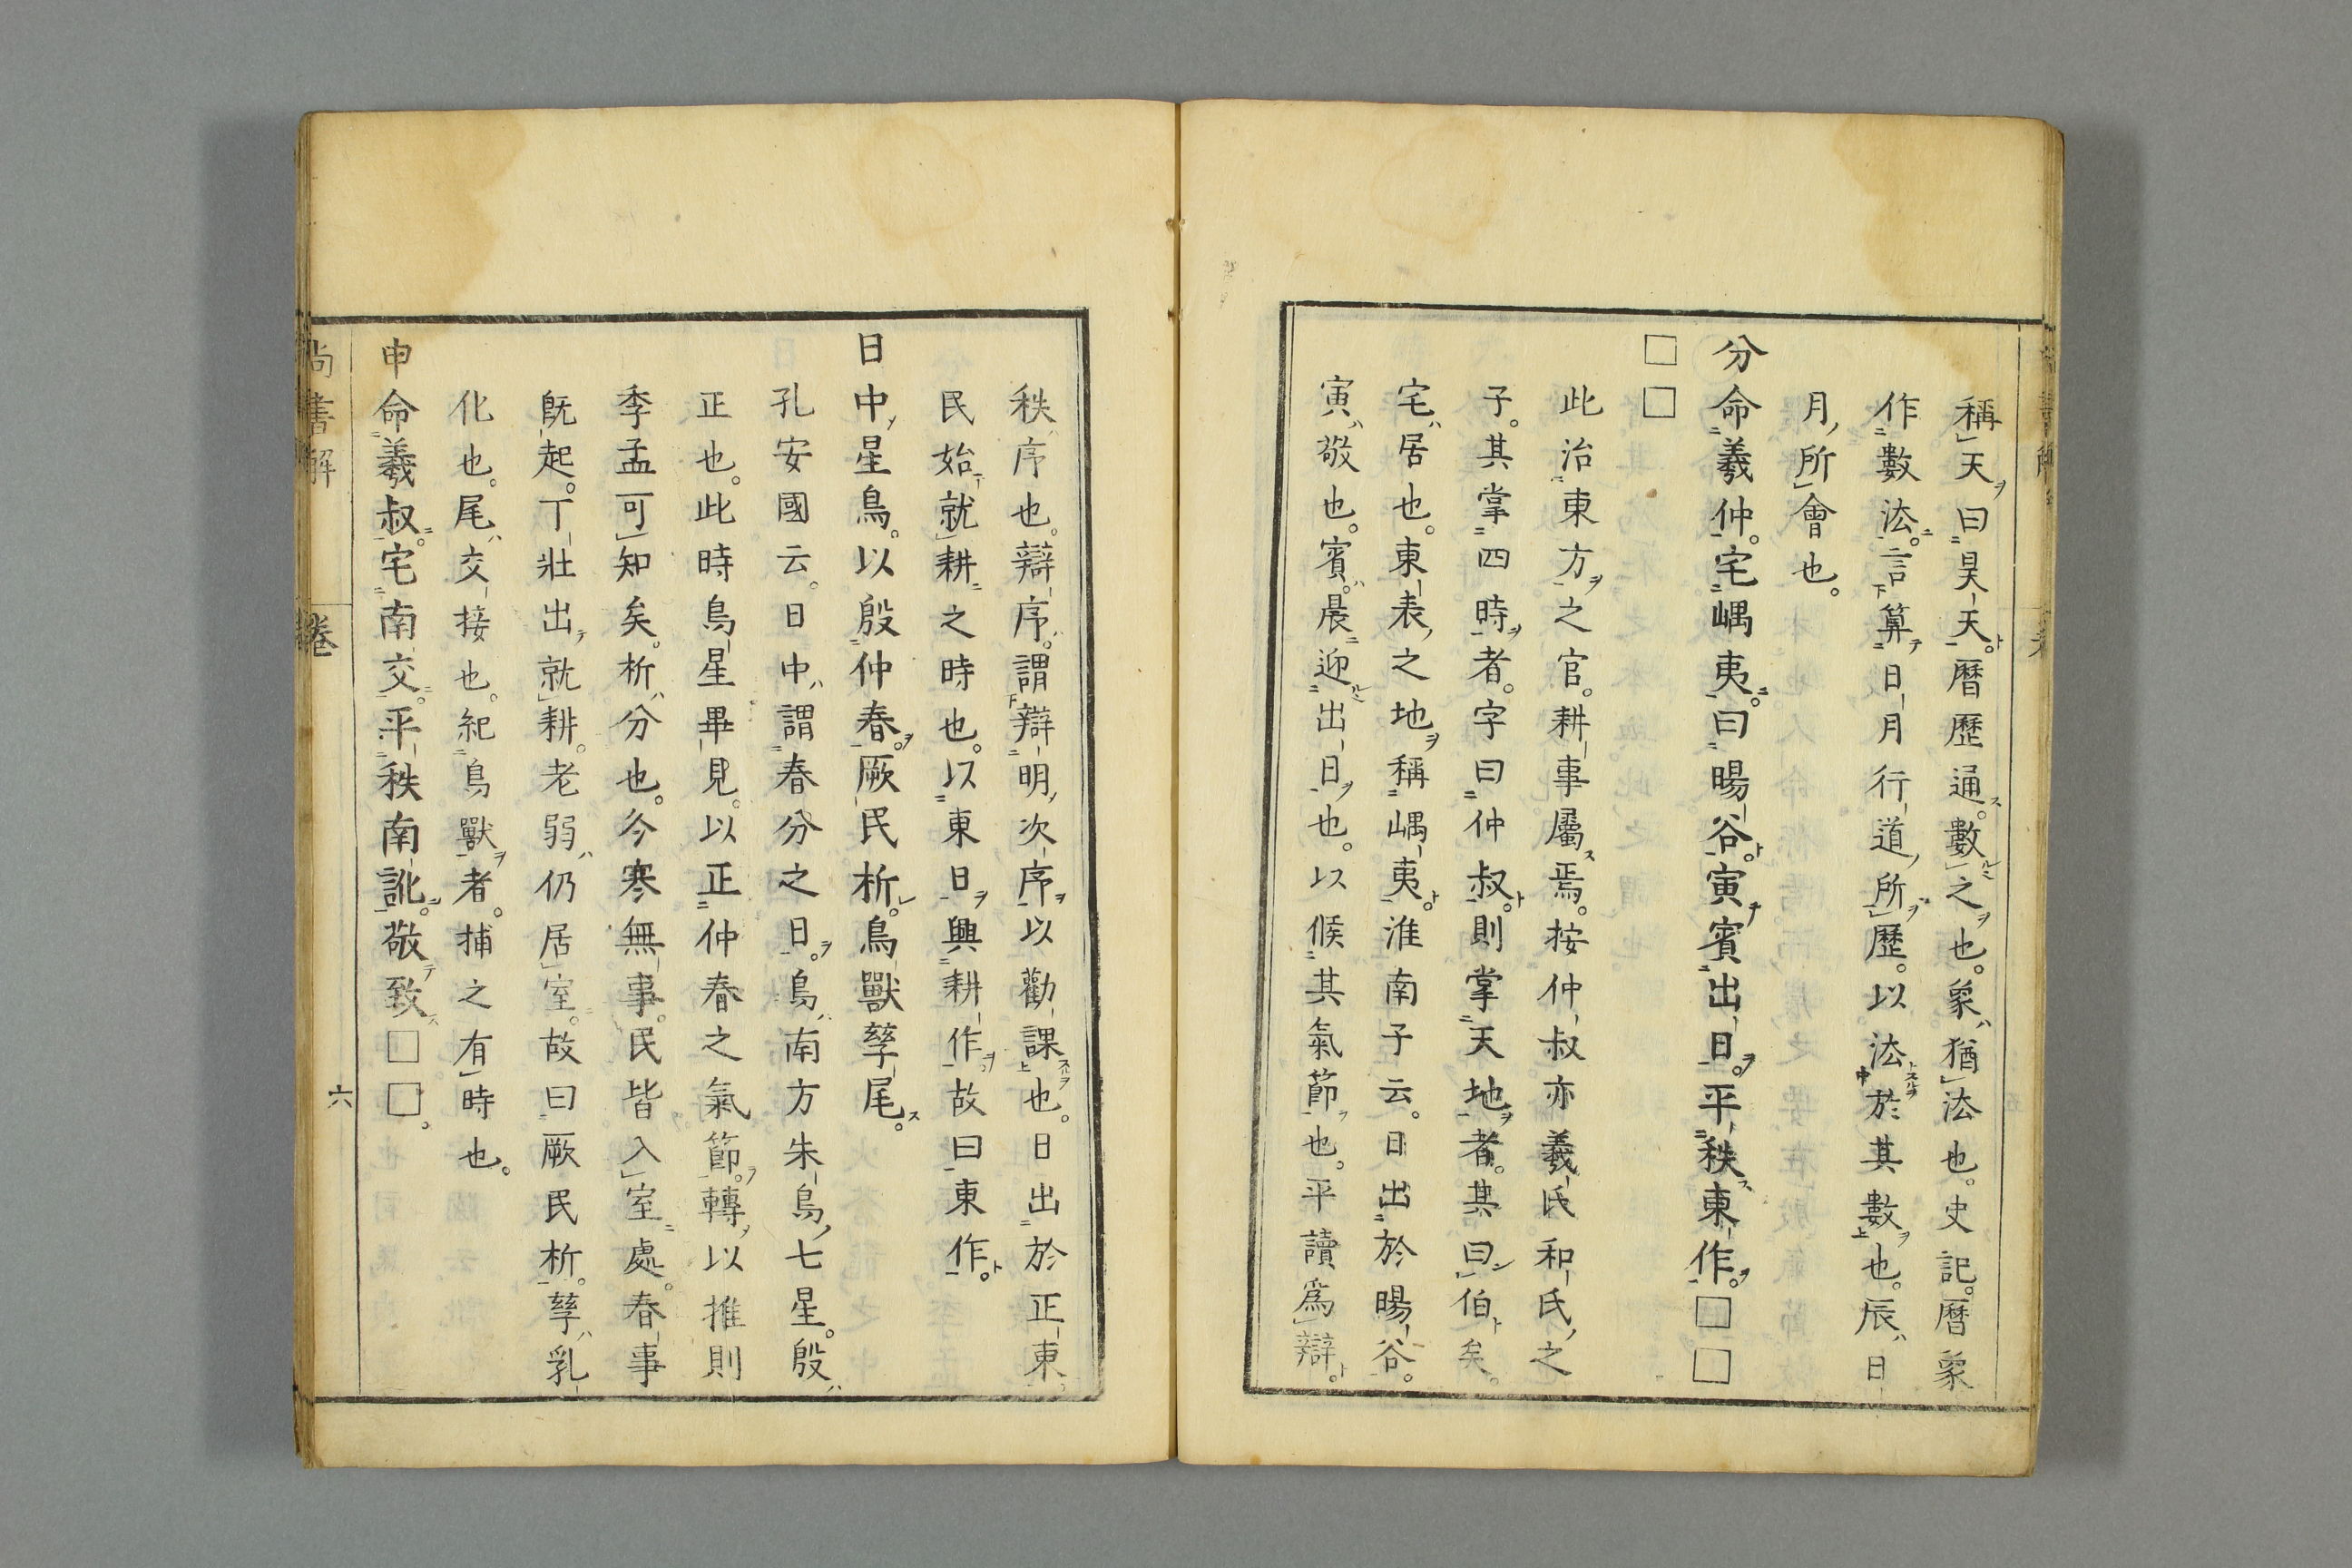 稱天曰昊天。暦歷通。數之也。象猶法也。史記。暦象
作數法。言算日月行道所歷。以法於其數也。辰日
月所會也。
分命羲仲。宅嵎夷。曰暘谷。寅賓出日。平秩東作。□□
□□
此治東方之官。耕事屬焉。按仲叔亦羲氏和氏之
子。其掌四時者。字曰仲叔。則掌天地者。其曰伯矣。
宅居也。東表之地。稱嵎夷。淮南子云。日出於暘谷。
寅敬也。賓。晨迎出日也。以候其氣節也。平讀爲辯。
秩序也。辯序。謂辯明次序以勸課也。日出於正東。
民始就耕之時也。以東日興耕作。故曰東作。
日中星鳥。以殷仲春。厥民析。鳥獸孳尾。
孔安國云。日中謂春分之日。鳥南方朱鳥七星。殷
正也。此時鳥星畢見。以正仲春之氣節。轉以推則
季孟可知矣。析分也。今寒無事。民皆入室處。春事
旣起。丁壯出就耕。老弱仍居室。故曰厥民析。孳乳
化也。尾交接也。紀鳥獸者。捕之有時也。
申命羲叔。宅南交。平秩南訛。敬致□□。
尚書解 卷 六